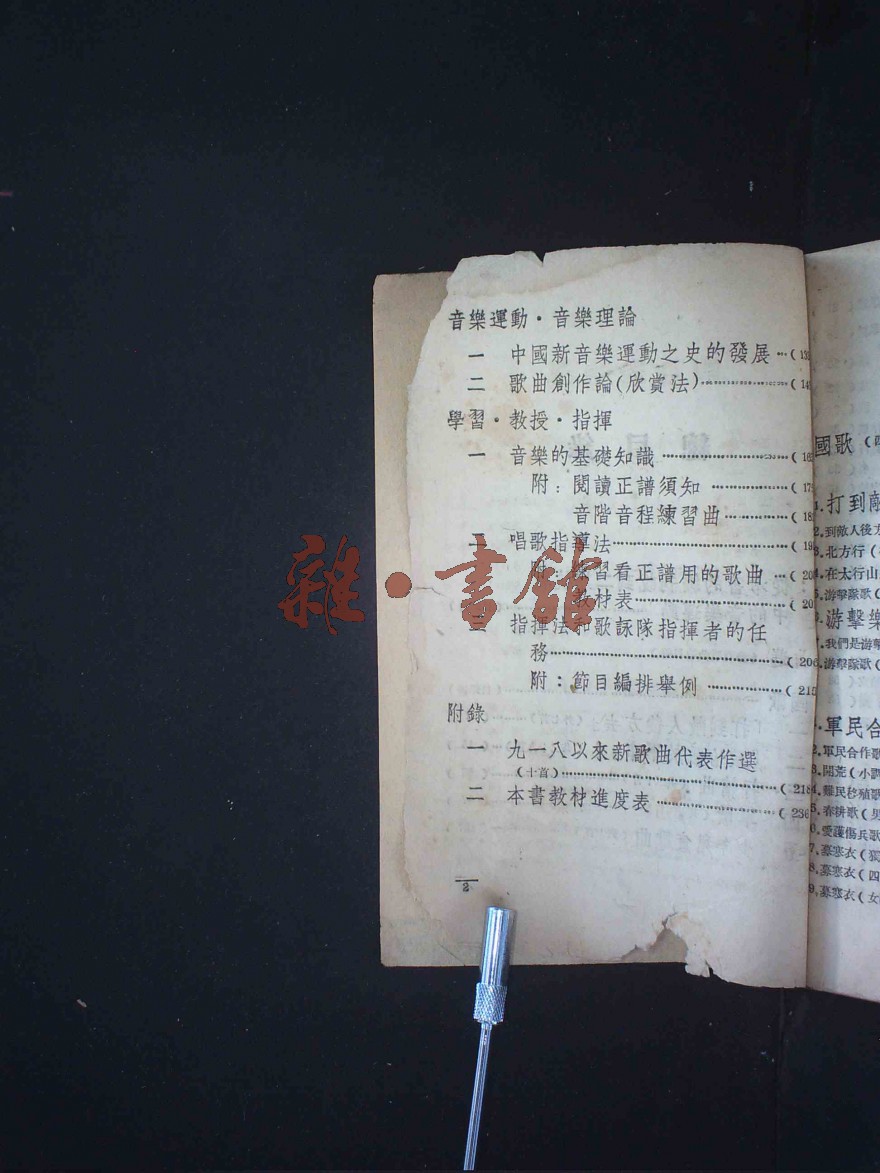 音樂運動·音樂理論
一 中國新音樂運動之史的發展…(13
二 歌曲創作論(欣賞法)…………(14
學習·教授·指揮
一 音樂的基礎知識…………(16
附：閱讀正譜須知…………(17
音階音程練習曲…………(18
唱歌指導法…………(19
習看正譜用的歌曲…(20
教材表…………(20
指揮法和歌詠隊指揮者的任
務…………(206
附：節目編排舉例…………(215
附錄
一 九一八以來新歌曲代表作選
(十首)…………(218
二 本書教材進度表…………(236
2
國歌(四
1.打到敵
2.到敵人後方
3.北方行(
4.在太行山
5.游擊隊歌(
游擊樂
7.我們是游擊
8.游擊隊歌(
1.軍民合
2.軍民合作歌
3.開荒(小調
4.難民移殖歌
5.春耕歌(男
6.愛護傷兵歌
7.募寒衣(獨
8.募寒衣(四
9.募寒衣(女
雜·書館